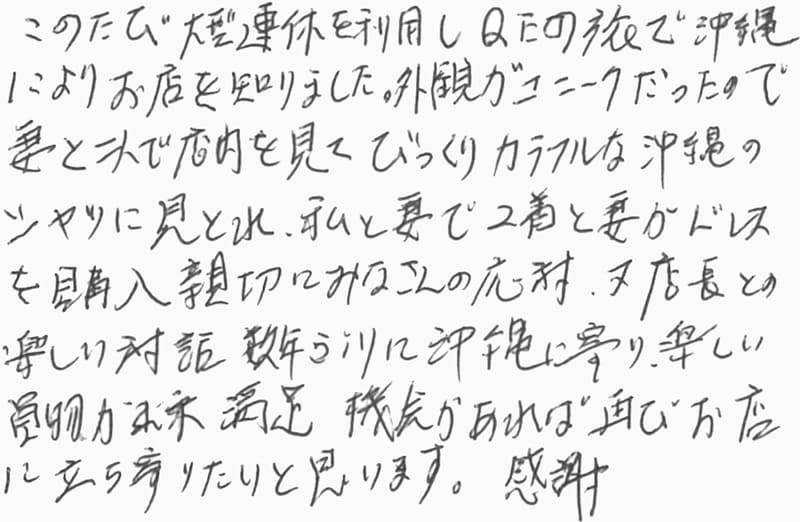 このたび大型連休を利用しQEの旅で沖縄
によりお店を知りました。外観がユニークだったので
妻と二人で店内を見てびっくりカラフルな沖縄の
シャツに見とれ、私と妻で2着と妻がドレス
を購入親切にみなさんの応対、又店長との
楽しい対話 数年ぶりに沖縄に寄り、楽しい
買物が出来 満足 機会があれば再びお店
に立ち寄りたいと思います。 感謝